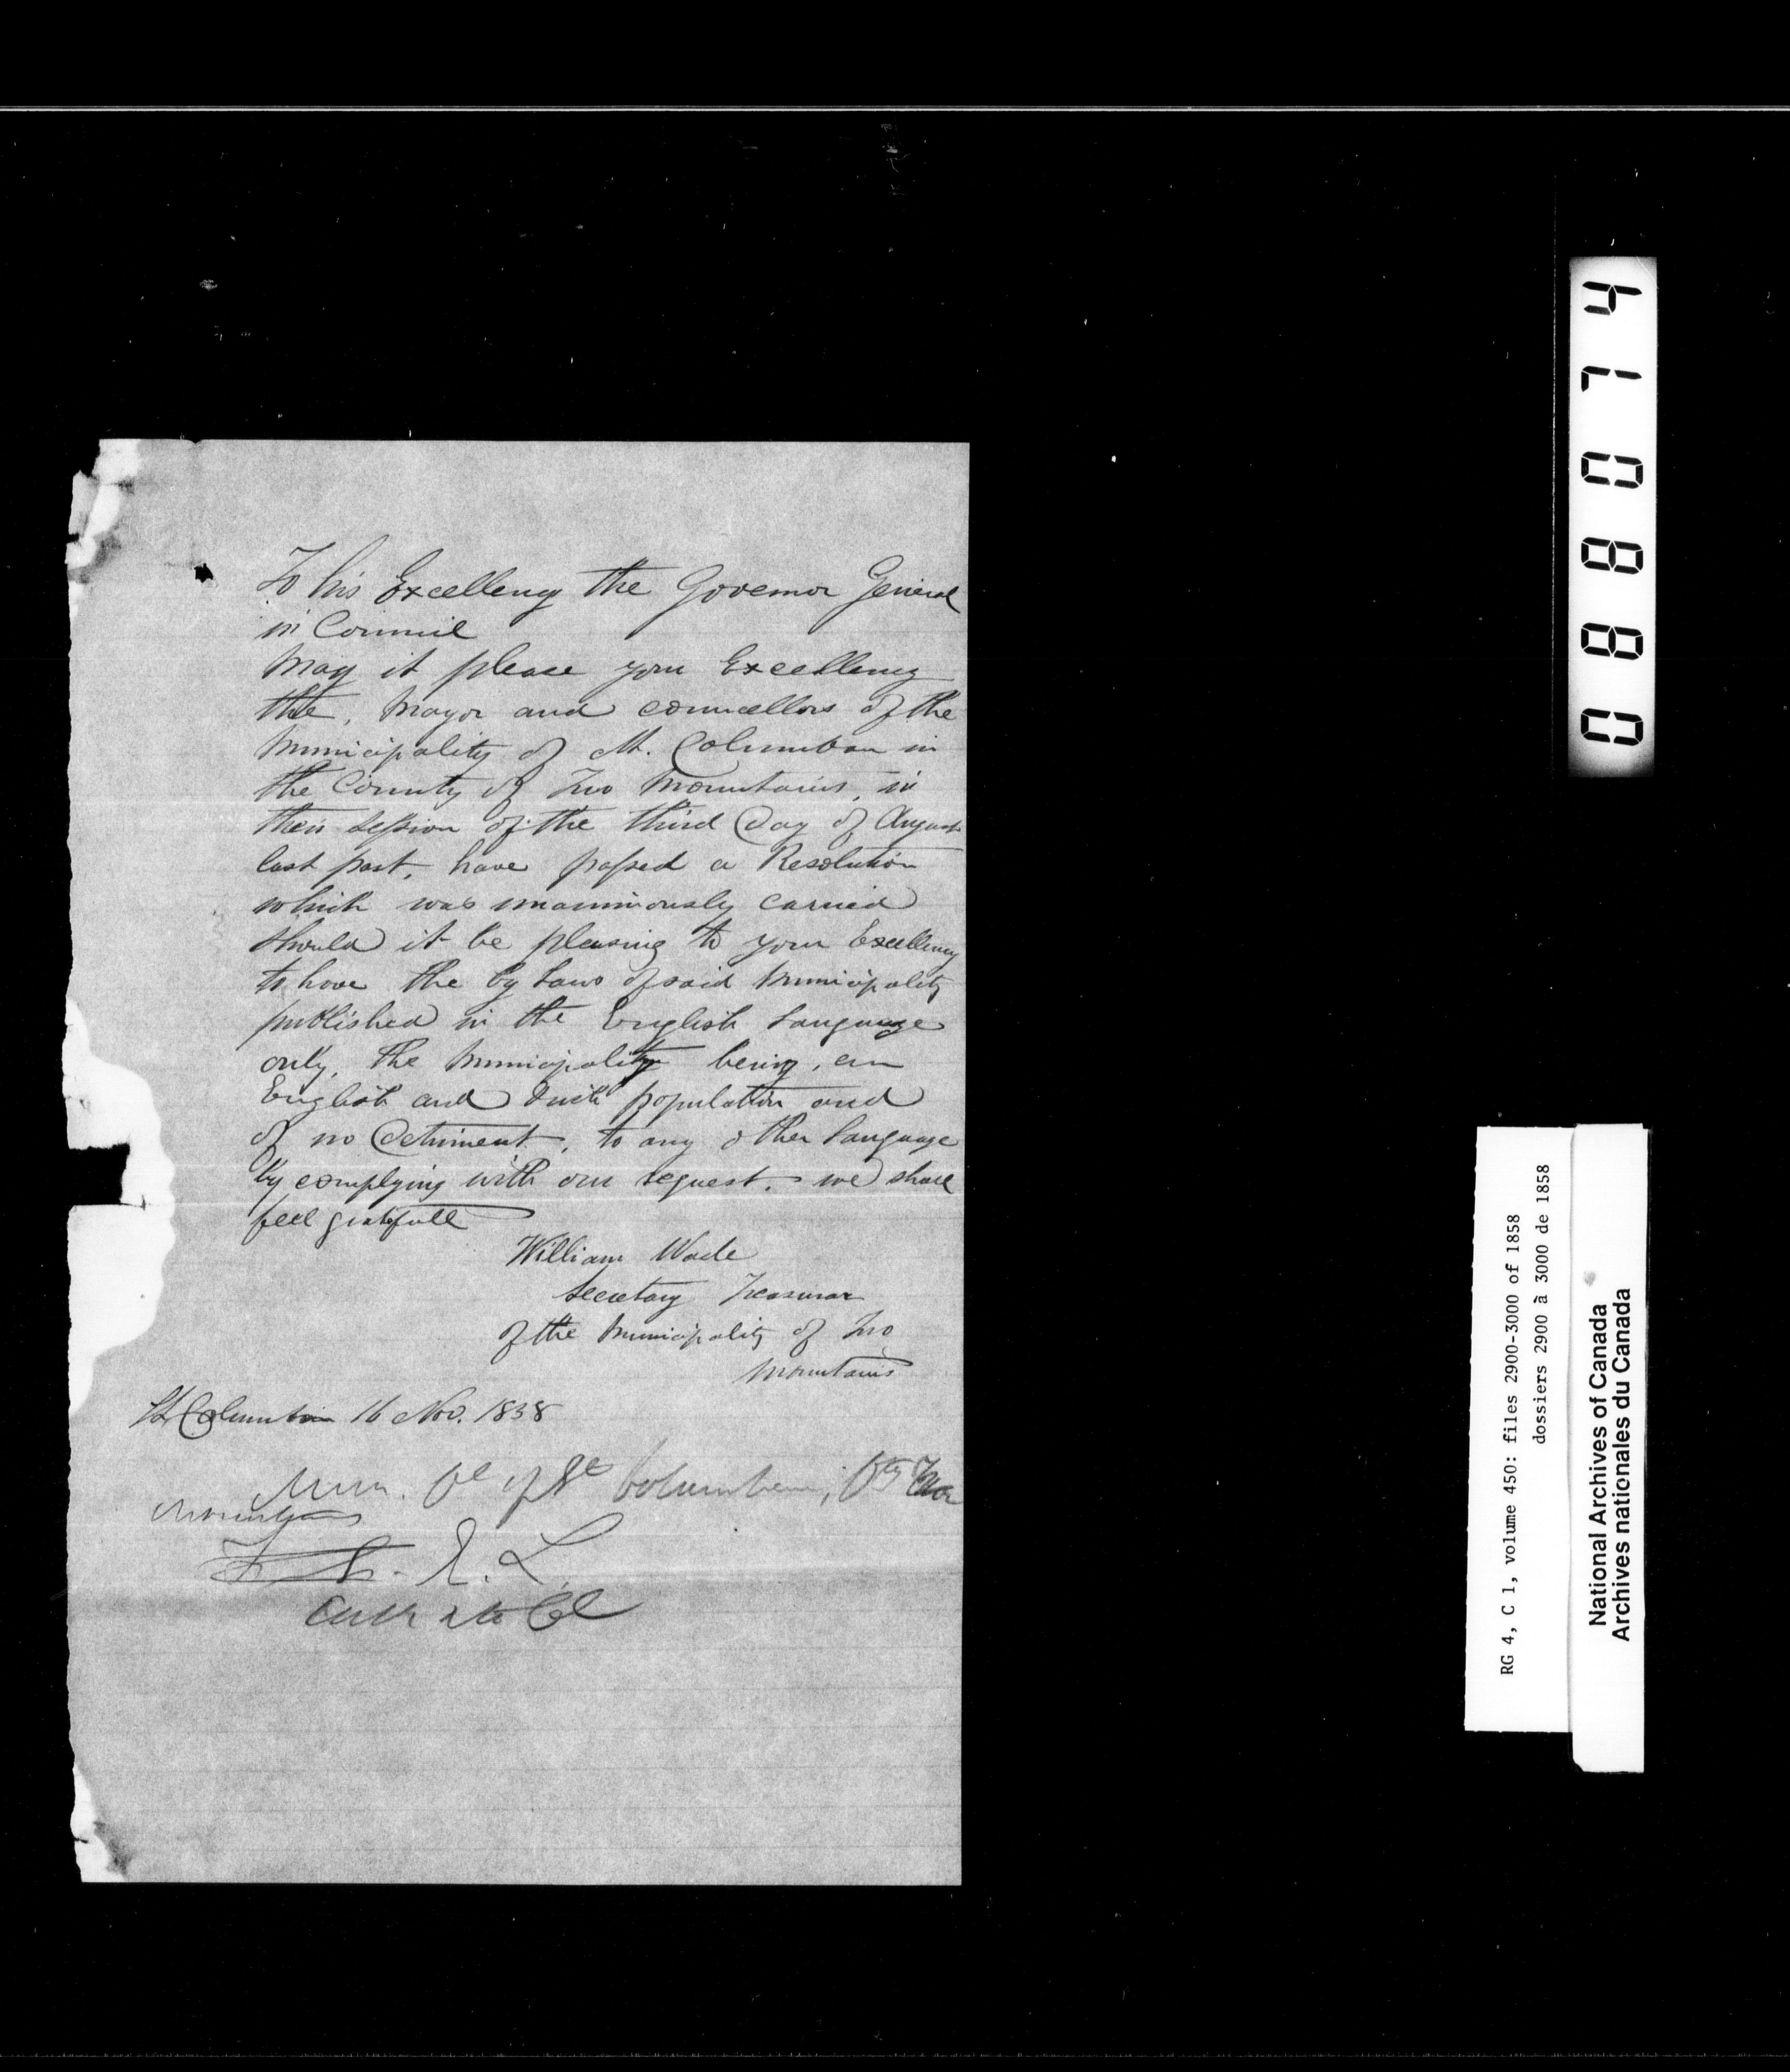 To his Excellency the Governor General
in Council
May it please your Excellency
the, Mayor and councellors of the
Municipality of St. Columban in
the County of Two Mountains, in
their session of the third Day of August
last past, have passed a Resolution
which was unanimously carried
should it be pleasing to your Excellency
to have the by Laws of said Municipality
published in the English Language
only, the Municipality being, an
English and Irish population and
of no Detriment, to any other Language
by complying with our request. we shall
feel gratefull
William Wade
Secretary Treasurar
of the Municipality of Two
Mountains
St Columban 16 Nov. 1858
Mun. Cl of St Columban, Cty Two
Mountains
E. L.
088074
RG 4, C 1, volume 450: files 2900-3000 of 1858
dossiers 2900 à 3000 de 1858
National Archives of Canada
Archives nationales du Canada